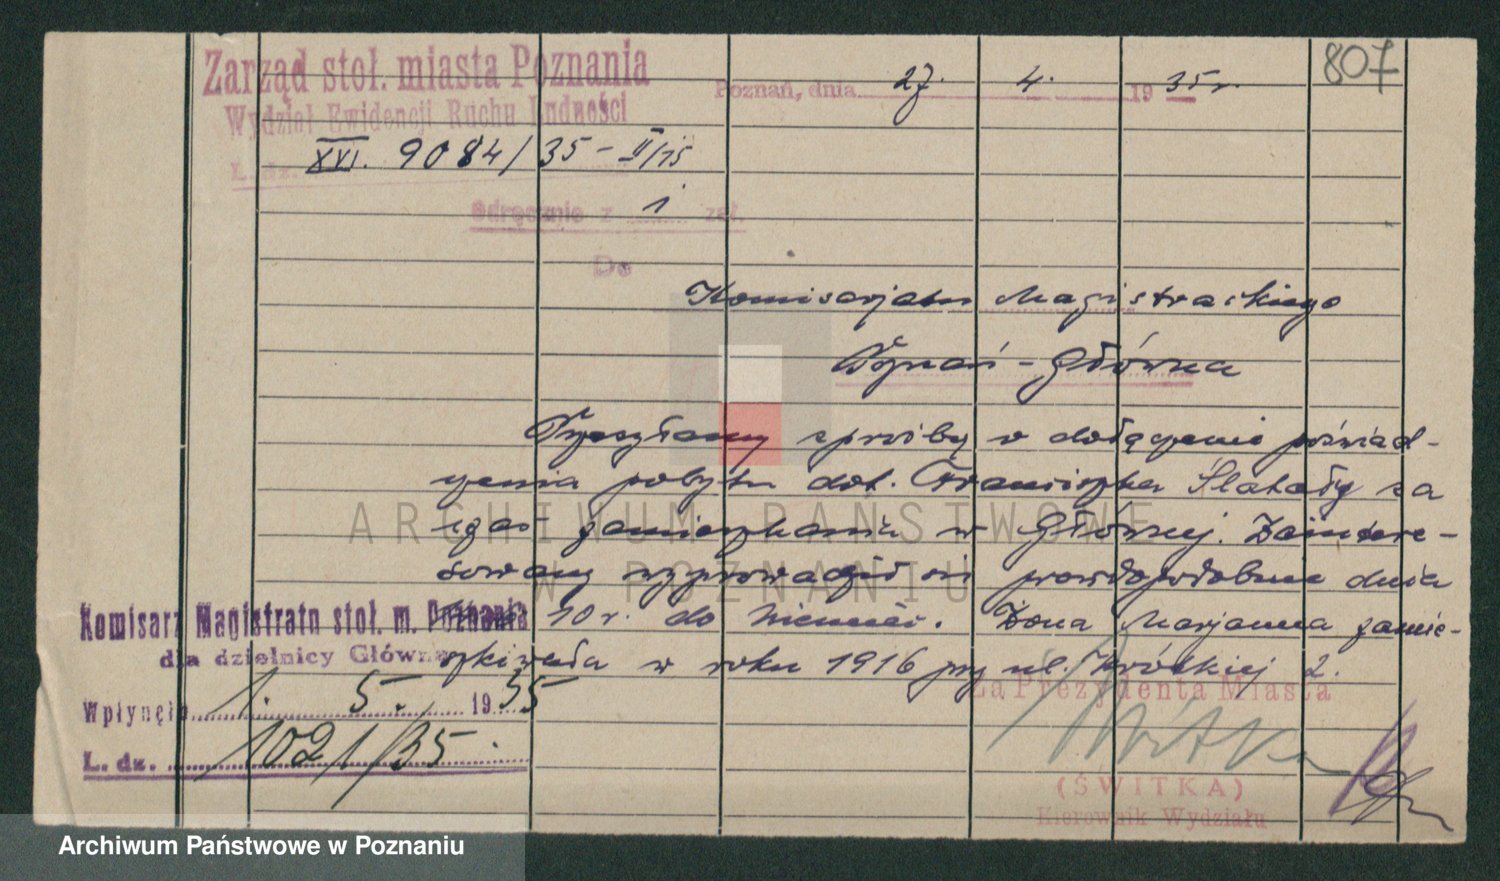 807
Zarząd stoł. miasta Poznania
Wydział Ewidencji Ruchu Ludności
Poznań, dnia 27. 4. 1935 r.
L. dz. XVI. 9084/35 - II/15
Odręcznie z 1 zał.
Do
Komisarjatu Magistrackiego
Poznań - Główna
Przesyłamy z prośbą o dołączenie poświad-
czenia pobytu dot. Franciszka Ślatały za
czas zamieszkania w Głównej. Zaintere-
sowany wyprowadził się prawdopodobnie dnia
10 r. do Niemiec. Żona Marjanna zamie-
szkiwała w roku 1916 przy ul. Krótkiej 2.
Komisarz Magistratu stoł. m. Poznania
dla dzielnicy Główna
Wpłynęło 1. 5. 1935
L. dz. 1021/35.
Za Prezydenta Miasta
(ŚWITKA)
Kierownik Wydziału
ARCHIWUM PAŃSTWOWE
W POZNANIU
Archiwum Państwowe w Poznaniu